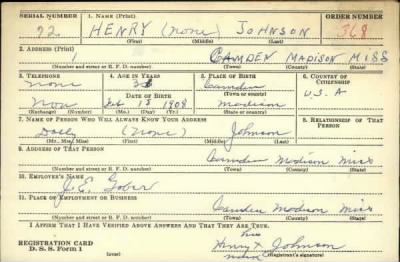 SERIAL NUMBER 1. NAME (Print) ORDER NUMBER
72 HENRY (none) JOHNSON 368
(First) (Middle) (Last)
2. ADDRESS (Print)
1 CAMDEN MADISON MISS
(Number and street or R. F. D. number) (Town) (County) (State)
3. TELEPHONE 4. AGE IN YEARS 5. PLACE OF BIRTH 6. COUNTRY OF CITIZENSHIP
none Camden
DATE OF BIRTH (Town or county) U.S.A
Non Feb 15 1908 Madison
(Exchange) (Number) (Mo.) (Day) (Yr.) (State or country)
7. NAME OF PERSON WHO WILL ALWAYS KNOW YOUR ADDRESS 8. RELATIONSHIP OF THAT PERSON
Dolly (none) Johnson
(Mr., Mrs., Miss) (First) (Middle) (Last)
9. ADDRESS OF THAT PERSON
Camden Madison Miss
(Number and street or R. F. D. number) (Town) (County) (State)
10. EMPLOYER'S NAME
J.E. Gober
11. PLACE OF EMPLOYMENT OR BUSINESS
Camden Madison Miss
(Number and street or R. F. D. number) (Town) (County) (State)
I AFFIRM THAT I HAVE VERIFIED ABOVE ANSWERS AND THAT THEY ARE TRUE.
his
REGISTRATION CARD Henry X Johnson
D. S. S. Form 1 mark (Registrant's signature)